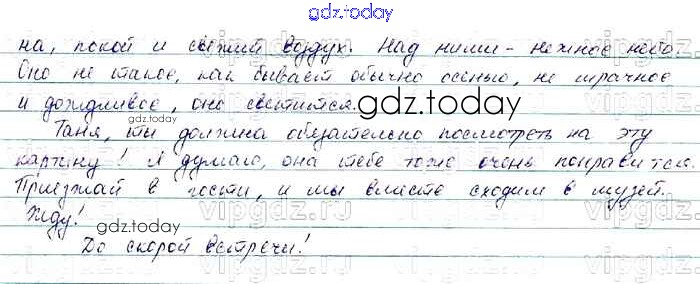 gdz.today
на, покой и свежий воздух. Над ними - нежное небо.
Оно не такое, как бывает обычно осенью, не мрачное
и дождливое, оно светится.
gdz.today
gdz.today
Таня, ты должна обязательно посмотреть на эту
картину! Я думаю, она тебе тоже очень понравится.
Приезжай в гости, и мы вместе сходим в музей.
Жду!
gdz.today
До скорой встречи!
vipgdz.ru